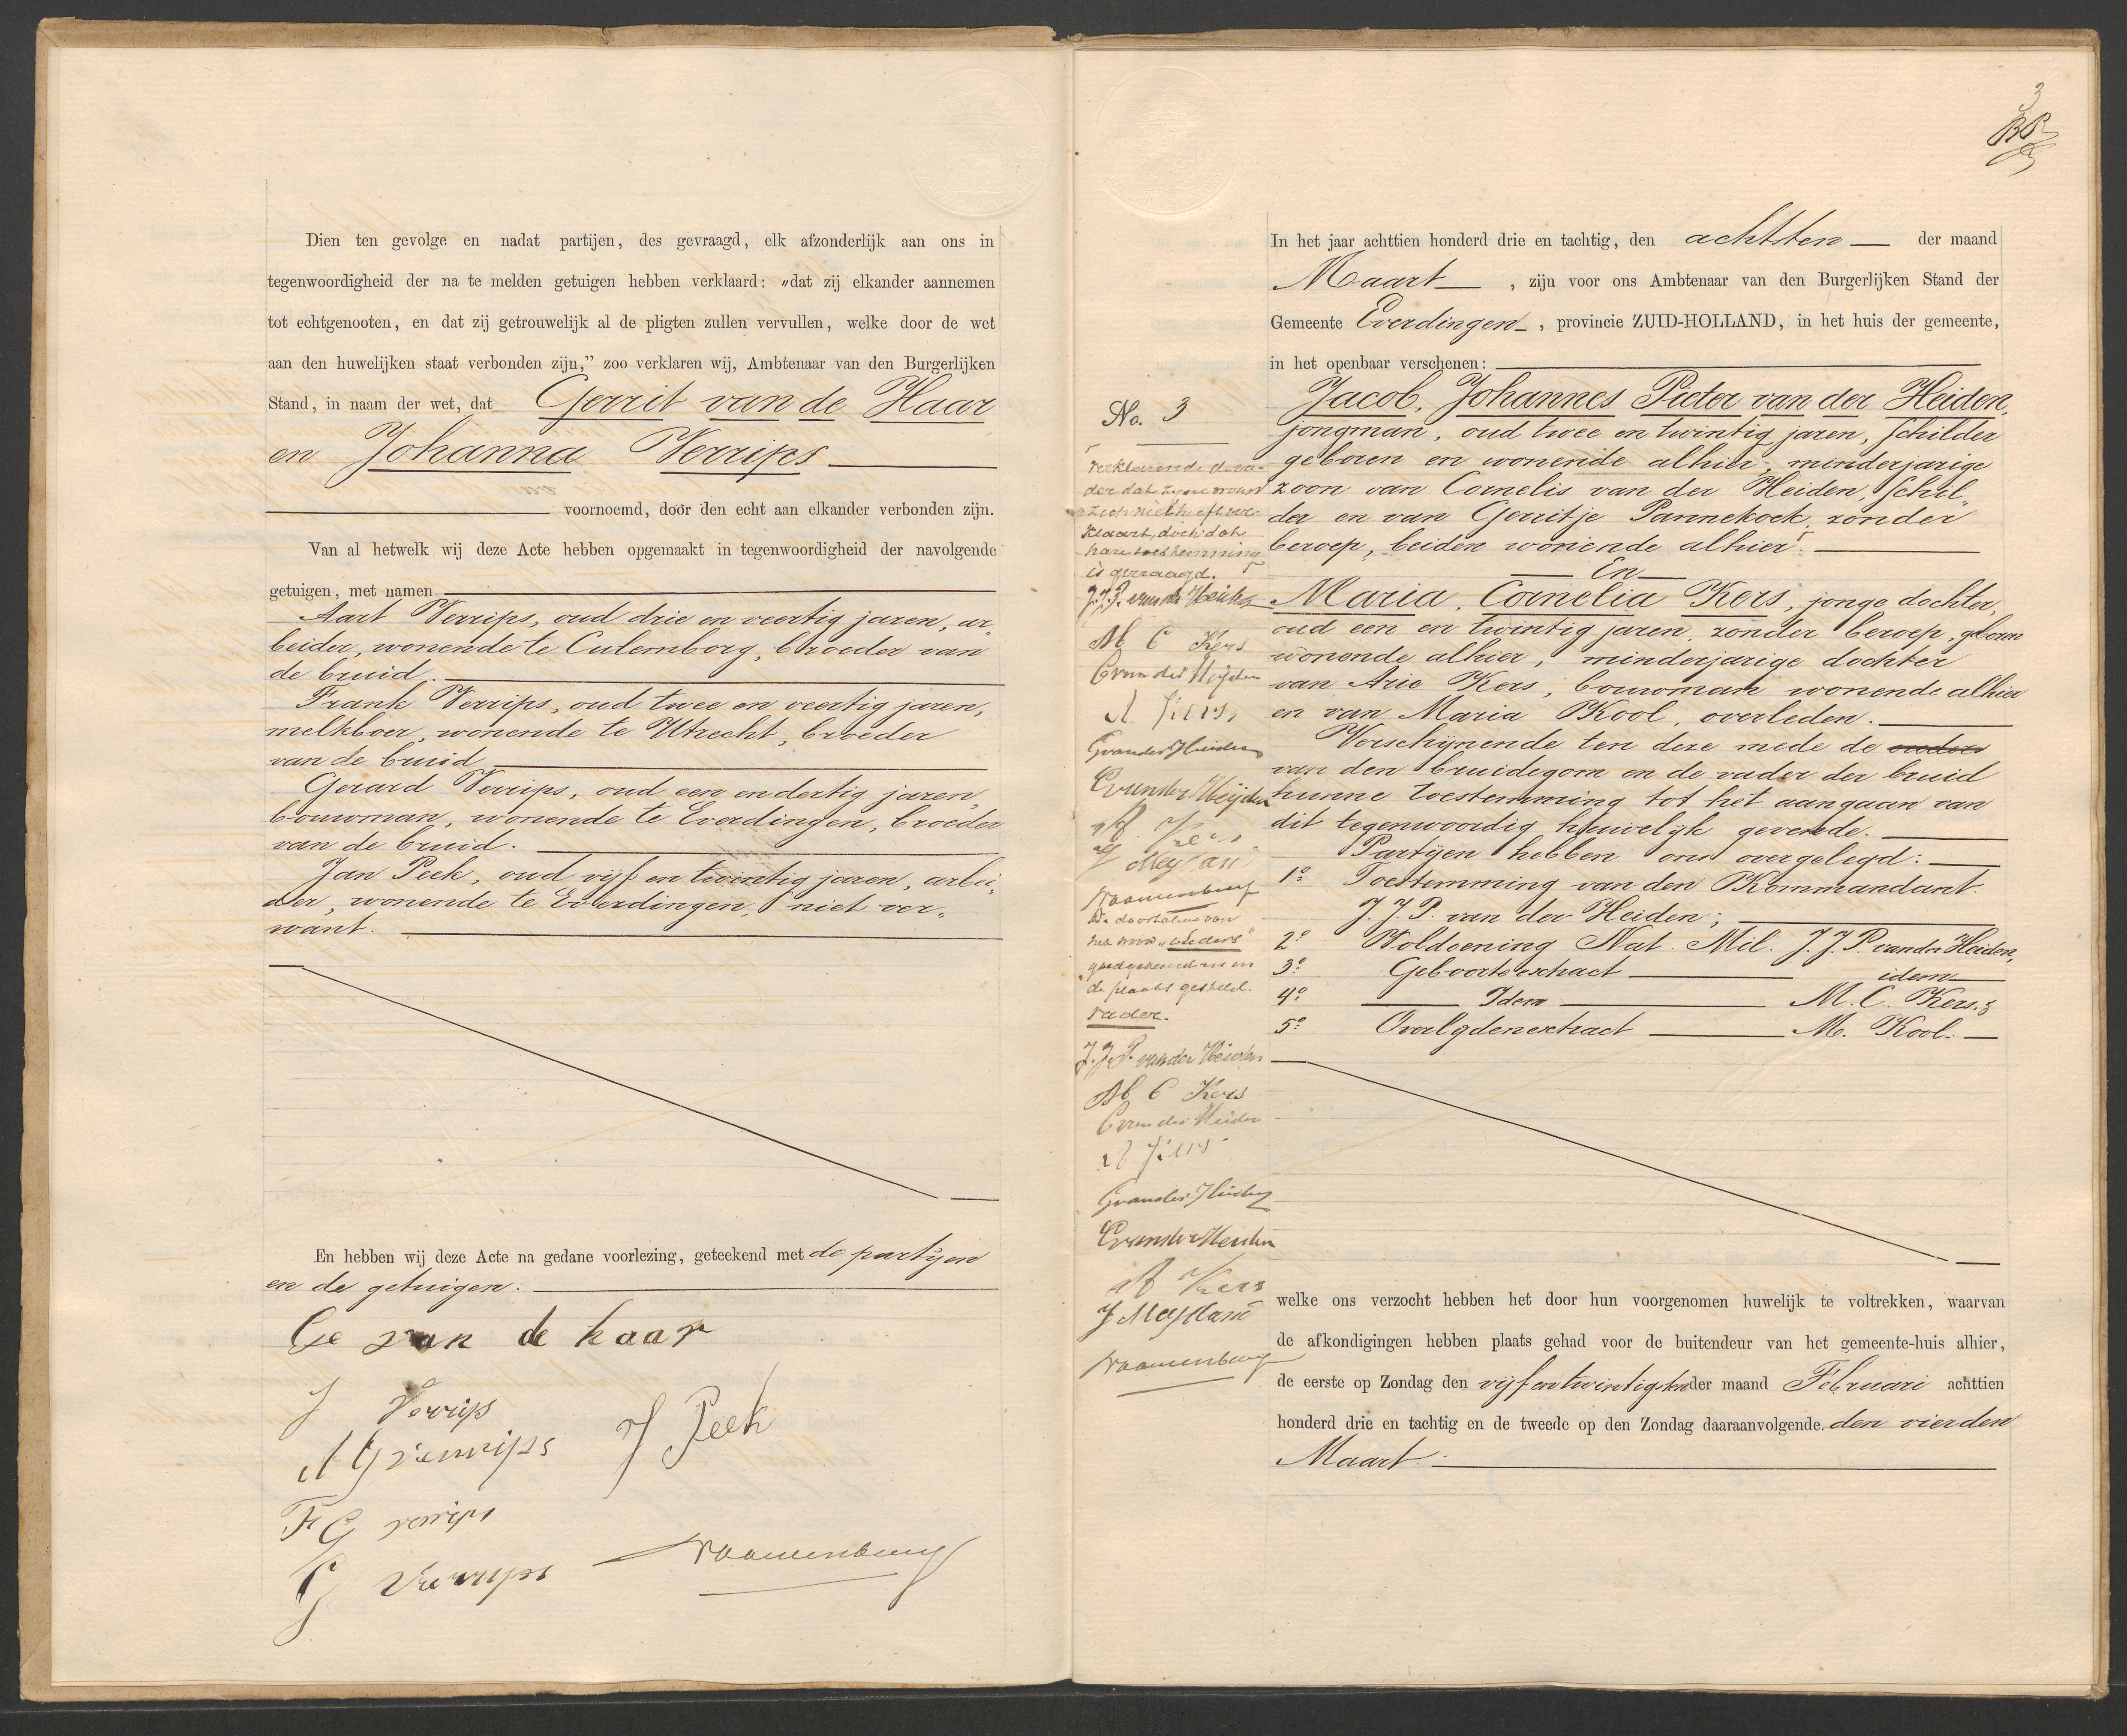 Dien ten gevolge en nadat partijen, des gevraagd, elk afzonderlijk aan ons in
tegenwoordigheid der na te melden getuigen hebben verklaard: „dat zij elkander aannemen
tot echtgenooten, en dat zij getrouwelijk al de pligten zullen vervullen, welke door de wet
aan den huwelijken staat verbonden zijn,” zoo verklaren wij, Ambtenaar van den Burgerlijken
Stand, in naam der wet, dat Gerrit van de Haar
en Johanna Verrips
voornoemd, door den echt aan elkander verbonden zijn.
Van al hetwelk wij deze Acte hebben opgemaakt in tegenwoordigheid der navolgende
getuigen, met namen
Aart Verrips, oud drie en veertig jaren, ar„
beider, wonende te Culemborg, broeder van
de bruid.
Frank Verrips, oud twee en veertig jaren,
melkboer, wonende te Utrecht, broeder
van de bruid
Gerard Verrips, oud een en dertig jaren,
bouwman, wonende te Everdingen, broeder
van de bruid.
Jan Peek, oud vijf en twintig jaren, arbei„
der, wonende te Everdingen, niet ver„
want.
En hebben wij deze Acte na gedane voorlezing, geteekend met de partijen
en de getuigen.
Ge van de haar
J Verrips
A G Verrips
J Peek
F G verrips
G Verrips
3
In het jaar achttien honderd drie en tachtig, den achtsten der maand
Maart, zijn voor ons Ambtenaar van den Burgerlijken Stand der
Gemeente Everdingen, provincie ZUID-HOLLAND, in het huis der gemeente,
in het openbaar verschenen:
No. 3
Jacob, Johannes Pieter van der Heiden,
jongman, oud twee en twintig jaren, schilder
geboren en wonende alhier, minderjarige
zoon van Cornelis van der Heiden, schil„
der en van Gerritje Pannekoek, zonder
beroep, beiden wonende alhier.
En
Maria, Cornelia Kers, jonge dochter,
oud een en twintig jaren, zonder beroep, geboren
wonende alhier, minderjarige dochter
van Arie Kers, bouwman wonende alhier
en van Maria Kool, overleden.
Verschijnende ten deze mede de ouders
van den bruidegom en de vader der bruid
hunne toestemming tot het aangaan van
dit tegenwoordig huwelijk gevende.
Partijen hebben ons overgelegd:
1º Toestemming van den Kommandant
J. J. P. van der Heiden;
2º Voldoening Nat. Mil. J. J. P. van der Heiden,
3º Geboorteextract idem
4º Idem M. C. Kers. &
5º Overlydenextract M. Kool.
verklarende de va-
der dat zyne vrouw
zich niet heeft ver-
klaart, doch dat
hare toestemming
is gevraagd.
J. J. P. van der Heiden
M C Kers
C van der Heijden
A Kers
G van der Heiden
C van der Heijden
A Kers
J Meijllane
De doorhaling van
het woord „ouders”
goedgekeurd en in
de plaats gesteld.
vader.
J. J. P. van der Heiden
M C Kers
C van der Heiden
A Kers
G van der Heiden
C van der Heiden
A Kers
J Meijllane
welke ons verzocht hebben het door hun voorgenomen huwelijk te voltrekken, waarvan
de afkondigingen hebben plaats gehad voor de buitendeur van het gemeente-huis alhier,
de eerste op Zondag den vijf en twintigsten der maand Februari achttien
honderd drie en tachtig en de tweede op den Zondag daaraanvolgende. den vierden
Maart.